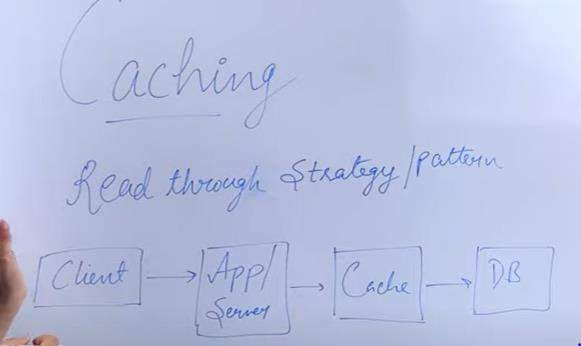 Caching
Read through Strategy/pattern
Client
App/
Server
Cache
DB